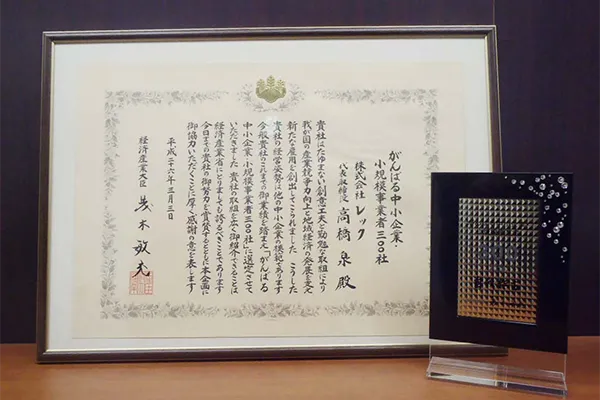 がんばる中小企業・
小規模事業者三〇〇社
株式会社レック
代表取締役 高橋 泉 殿
貴社はたゆまない創意工夫と勤勉な取組により
我が国の産業競争力向上と地域経済の発展を支え
新たな雇用を創出してこられました こうした
貴社の経営姿勢は他の中小企業の模範であります
今般貴社のこれまでの御業績を踏まえ「がんばる
中小企業・小規模事業者三〇〇社」に選定させて
いただきました 貴社の取組を広く御紹介できることは
経済産業省にとりましても誇るべきことであります
今日までの貴社の御努力を賞賛するとともに本企画に
御協力いただくことに厚く感謝の意を表します
平成二十六年三月三日
経済産業大臣 茂木敏充